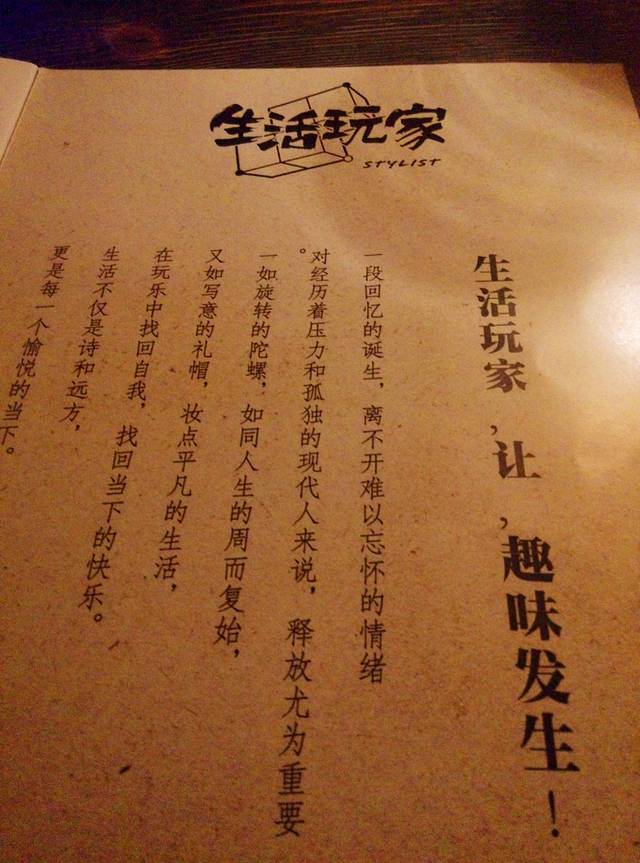 生活玩家
STYLIST
生活玩家,让,趣味发生!
一段回忆的诞生,离不开难以忘怀的情绪
对经历着压力和孤独的现代人来说,释放尤为重要
。
一如旋转的陀螺,如同人生的周而复始,
又如写意的礼帽,妆点平凡的生活,
在玩乐中找回自我,找回当下的快乐。
生活不仅是诗和远方,
更是每一个愉悦的当下。